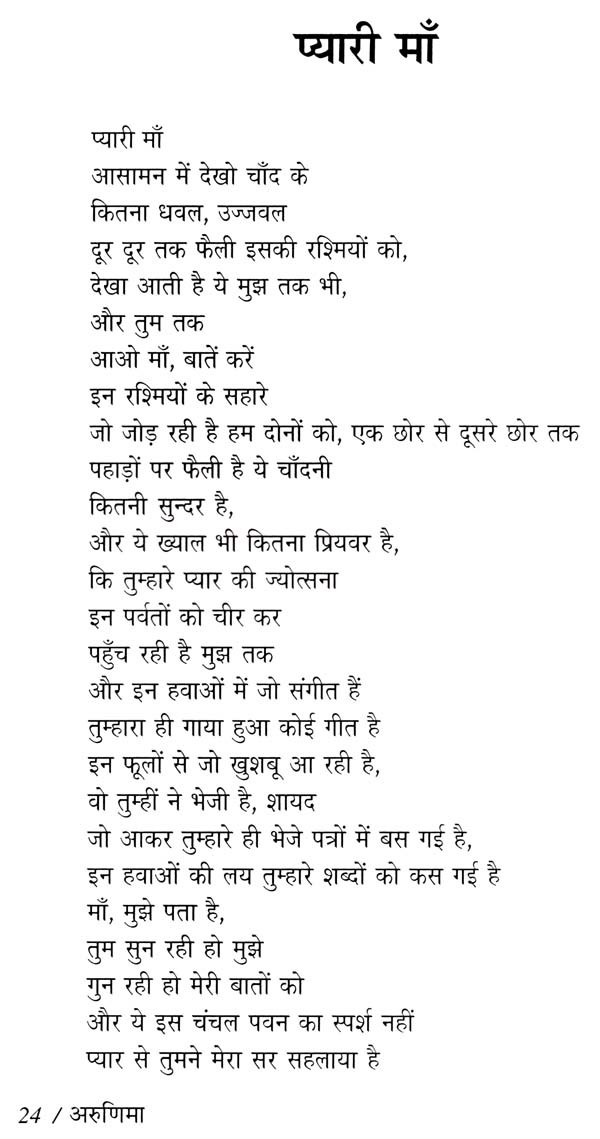 प्यारी माँ
प्यारी माँ
आसामन में देखो चाँद के
कितना धवल, उज्जवल
दूर दूर तक फैली इसकी रश्मियों को,
देखा आती है ये मुझ तक भी,
और तुम तक
आओ माँ, बातें करें
इन रश्मियों के सहारे
जो जोड़ रही है हम दोनों को, एक छोर से दूसरे छोर तक
पहाड़ों पर फैली है ये चाँदनी
कितनी सुन्दर है,
और ये ख्याल भी कितना प्रियवर है,
कि तुम्हारे प्यार की ज्योत्सना
इन पर्वतों को चीर कर
पहुँच रही है मुझ तक
और इन हवाओं में जो संगीत हैं
तुम्हारा ही गाया हुआ कोई गीत है
इन फूलों से जो खुशबू आ रही है,
वो तुम्हीं ने भेजी है, शायद
जो आकर तुम्हारे ही भेजे पत्रों में बस गई है,
इन हवाओं की लय तुम्हारे शब्दों को कस गई है
माँ, मुझे पता है,
तुम सुन रही हो मुझे
गुन रही हो मेरी बातों को
और ये इस चंचल पवन का स्पर्श नहीं
प्यार से तुमने मेरा सर सहलाया है
24 / अरुणिमा